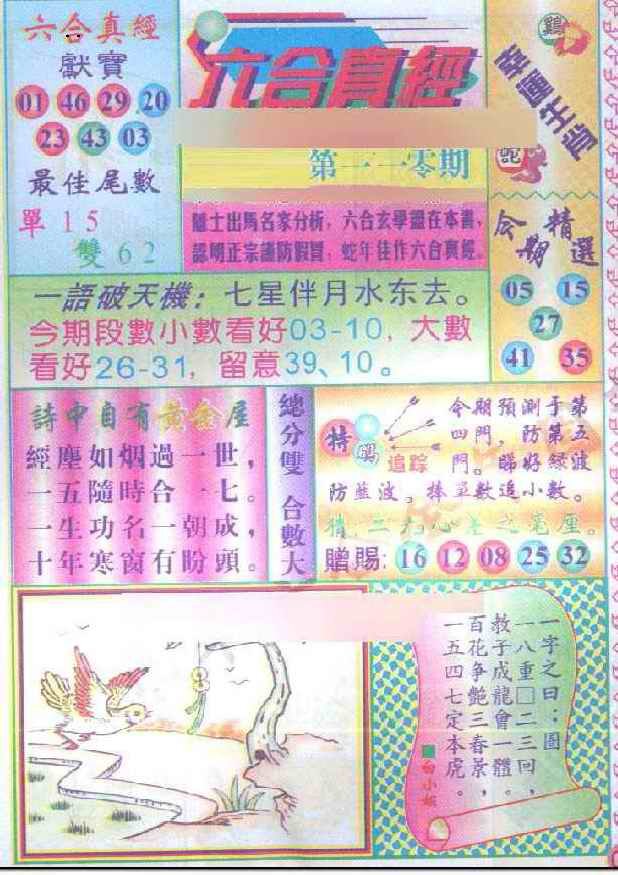 六合真經
獻寶
01 46 29 20
23 43 03
最佳尾數
單 1 5
雙 6 2
六合真經
第一一零期
雞
幸運生肖
蛇
隱士出馬名家分析，六合玄學盡在本書，
認明正宗謹防假冒，蛇年佳作六合真經。
今期精選
05 15
27
41 35
一語破天機：七星伴月水东去。
今期段數小數看好03-10，大數
看好26-31，留意39、10。
詩中自有黃金屋
經塵如烟過一世，
一五隨時合一七。
一生功名一朝成，
十年寒窗有盼頭。
總分雙 合數大
特碼
追踪
今期預測于第
四門，防第五
門。睇好綠波
防藍波，捧單數追小數。
猜：二九心差之毫厘。
贈賜: 16 12 08 25 32
一字之曰：圖
一八重□二三回，
教子成龍會一體。
百花争艷三春景，
一五四七定本虎。
白小姐